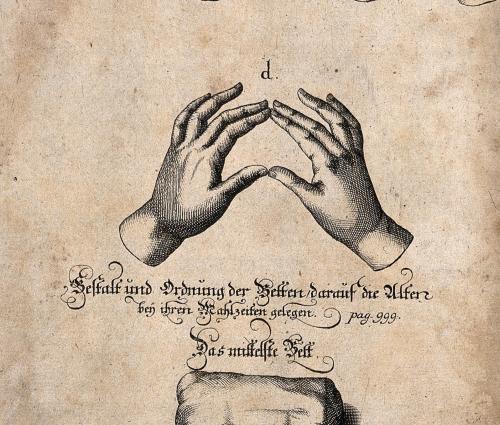 d.
Gestalt und Ordnung der Betten/darauf die Alten
bey ihren Mahlzeiten gelegen. pag. 999.
Das mittelste Bett